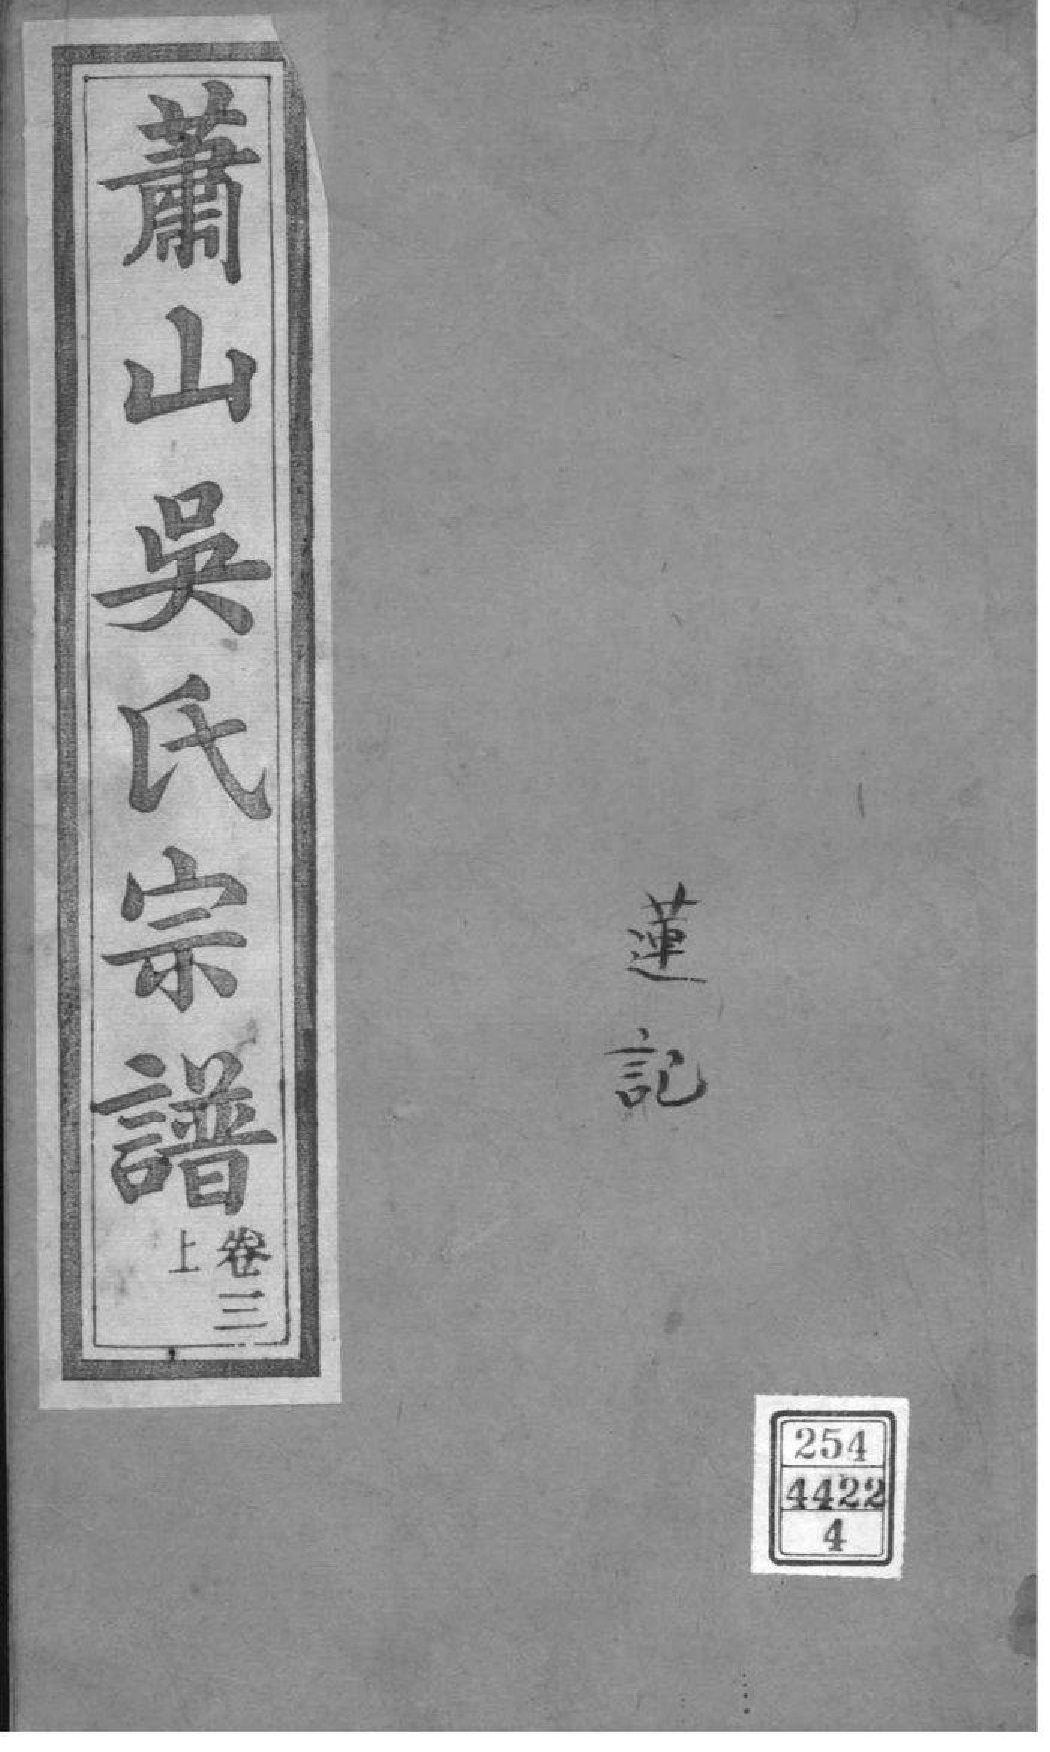 蕭山吳氏宗譜
卷三
上
蓮記
254
4422
4